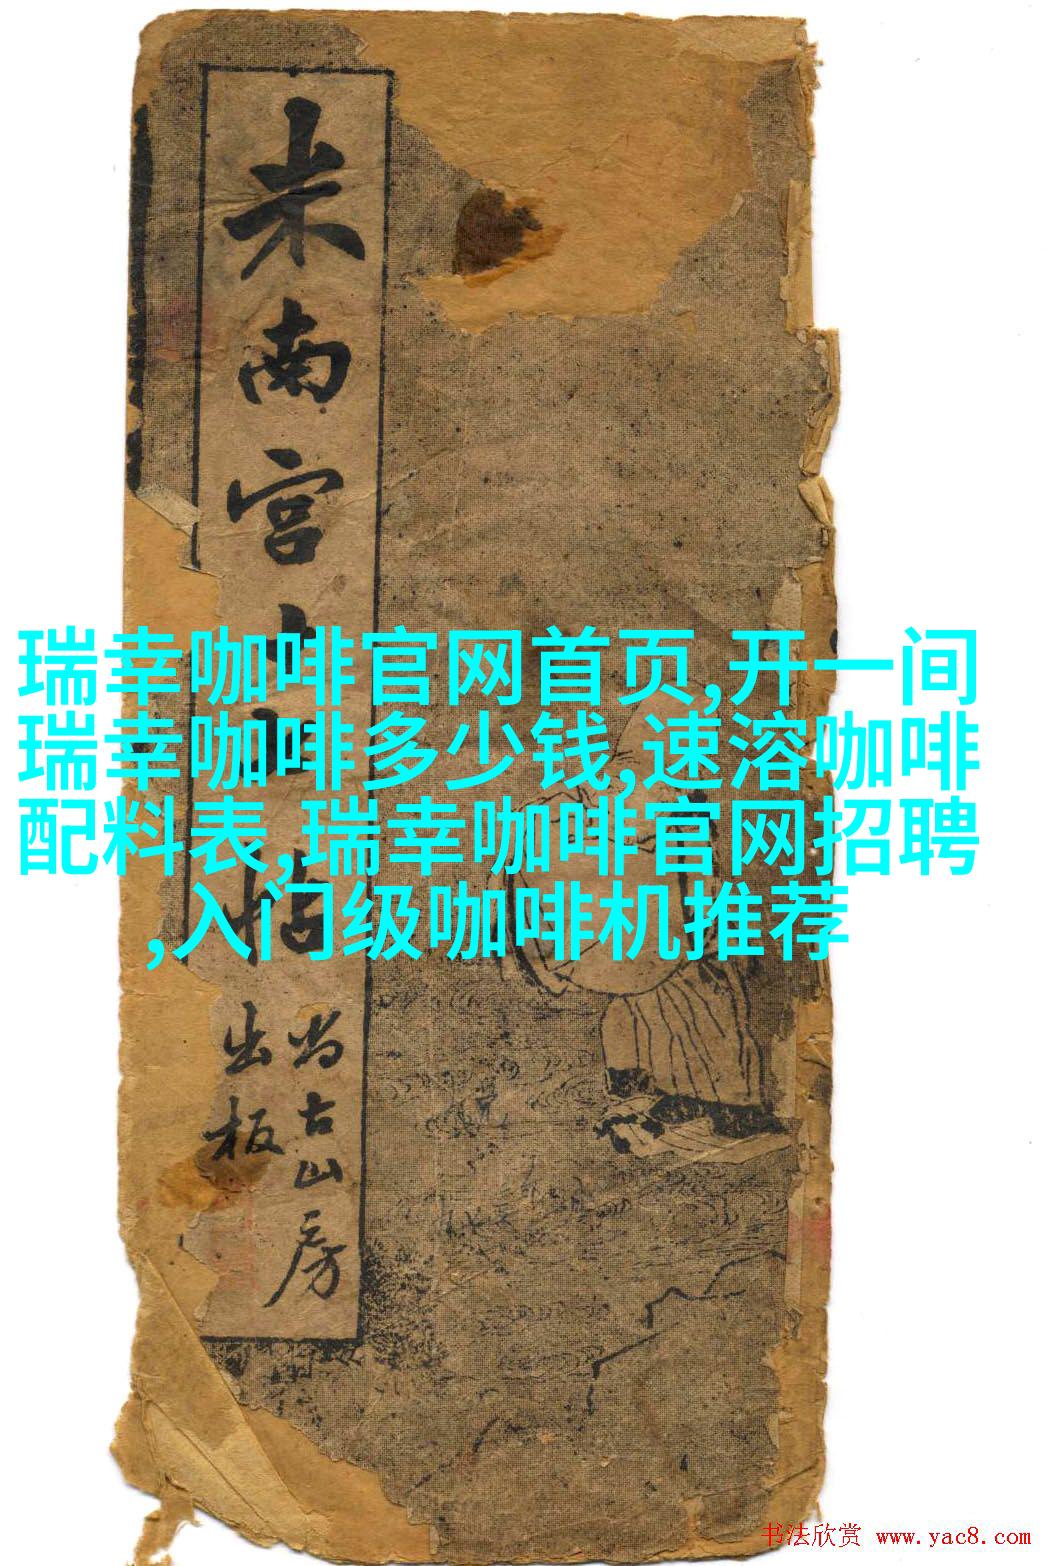 米南宫山
尚古山房
出板
瑞幸咖啡官网首页,开一间
瑞幸咖啡多少钱,速溶咖啡
配料表,瑞幸咖啡官网招聘
,入门级咖啡机推荐
书法欣赏 www.yac8.com